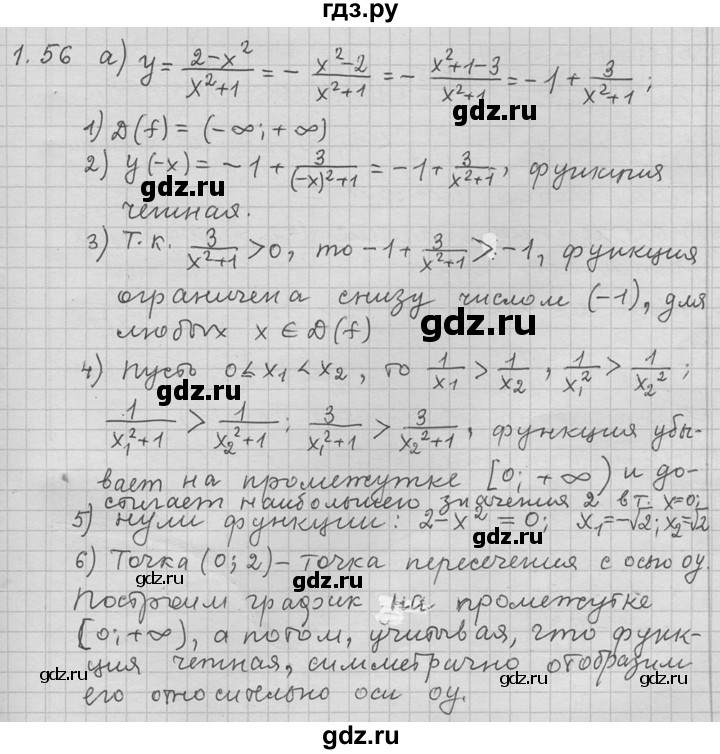 гдз.ру
1.56 а) y = (2-x²)/(x²+1) = - (x²-2)/(x²+1) = - (x²+1-3)/(x²+1) = -1 + 3/(x²+1);
gdz.ru
1) D(f) = (-∞; +∞)
2) y(-x) = -1 + 3/((-x)²+1) = -1 + 3/(x²+1), функция
gdz.ru
gdz.ru
четная.
3) Т.к. 3/(x²+1) > 0, то -1 + 3/(x²+1) > -1, функция
gdz.ru
gdz.ru
ограничена снизу числом (-1), для
любых x ∈ D(f)
gdz.ru
4) Пусть 0 ≤ x₁ < x₂, то 1/x₁ > 1/x₂, 1/x₁² > 1/x₂²;
gdz.ru
1/(x₁²+1) > 1/(x₂²+1); 3/(x₁²+1) > 3/(x₂²+1), функция убы-
вает на промежутке [0; +∞) и до-
стигает наибольшего значения 2 в т. x=0;
5) нули функции: 2-x² = 0; x₁=-√2; x₂=√2
gdz.ru
gdz.ru
6) Точка (0; 2) – точка пересечения с осью oy.
gdz.ru
gdz.ru
Построим график на промежутке
[0; +∞), а потом, учитывая, что функ-
gdz.ru
gdz.ru
ция четная, симметрично отобразим
его относительно оси oy.
gdz.ru
gdz.ru
гдз.ру